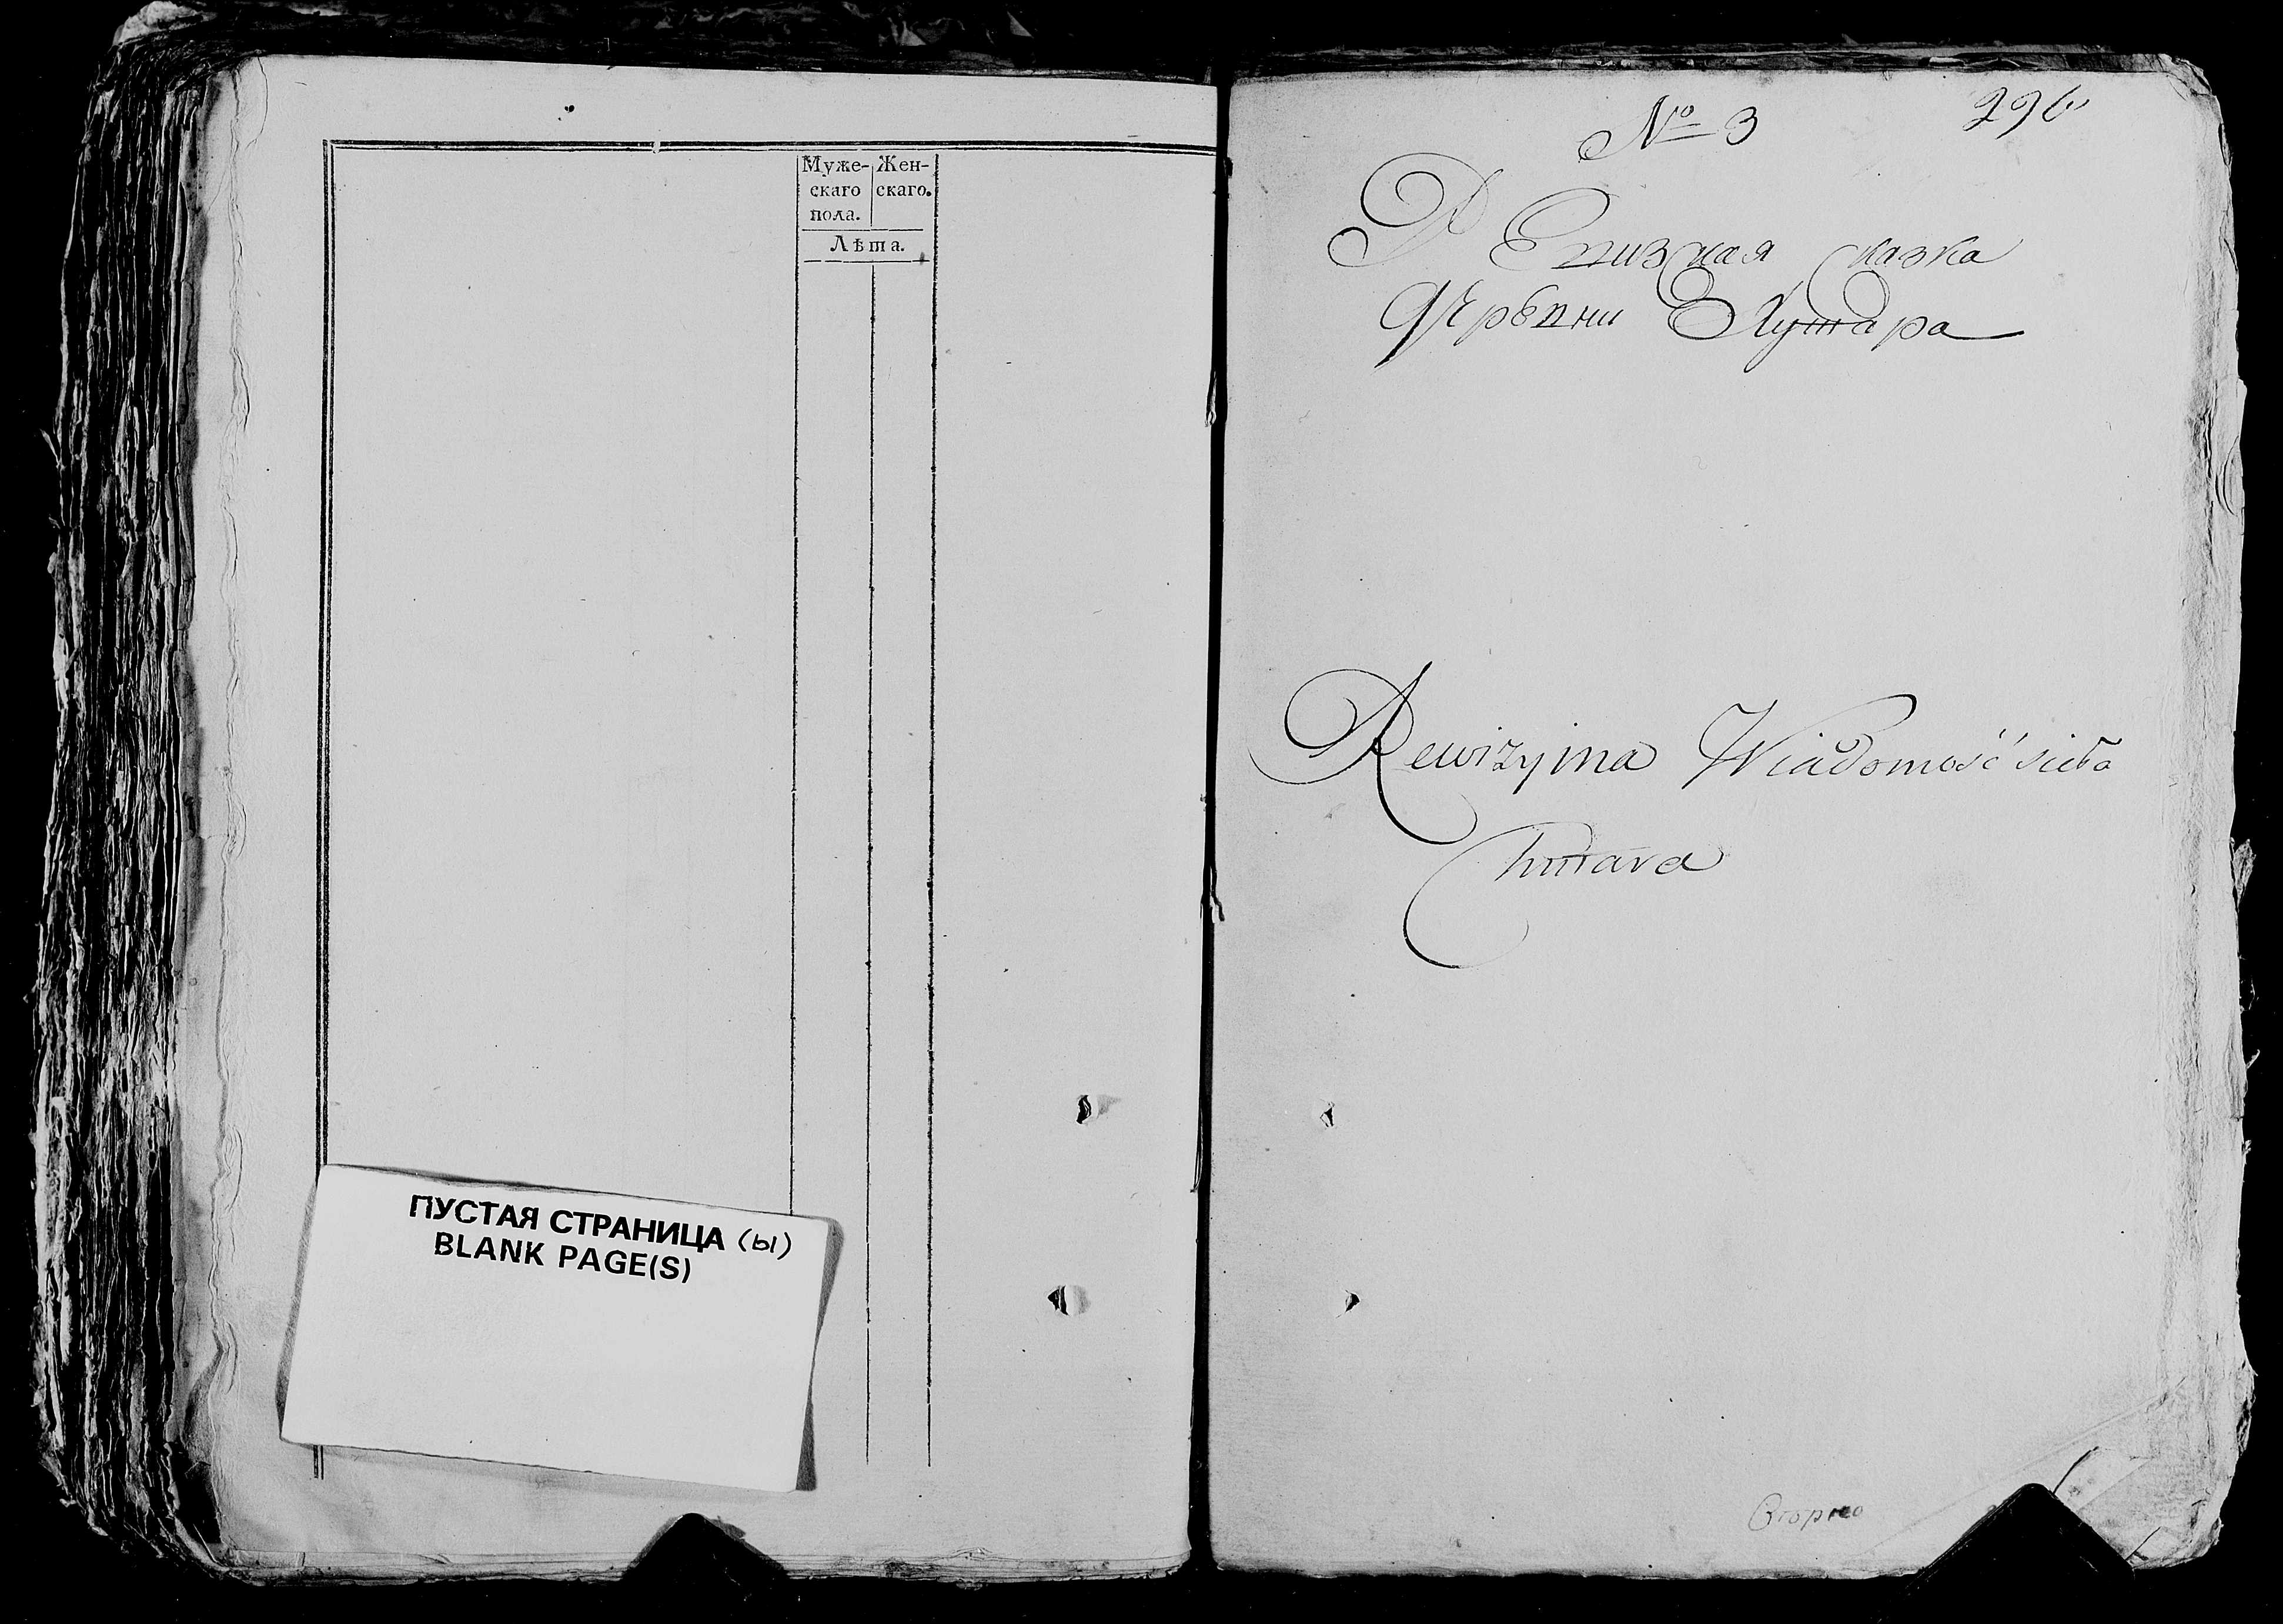 Муже-
скаго
пола.
Жен-
скаго.
Лѣта.
ПУСТАЯ СТРАНИЦА (ы)
BLANK PAGE(S)
№ 3
296
Ревизкая сказка
деревни Хутара
Rewizyina Wiadomość sioła
Chutara